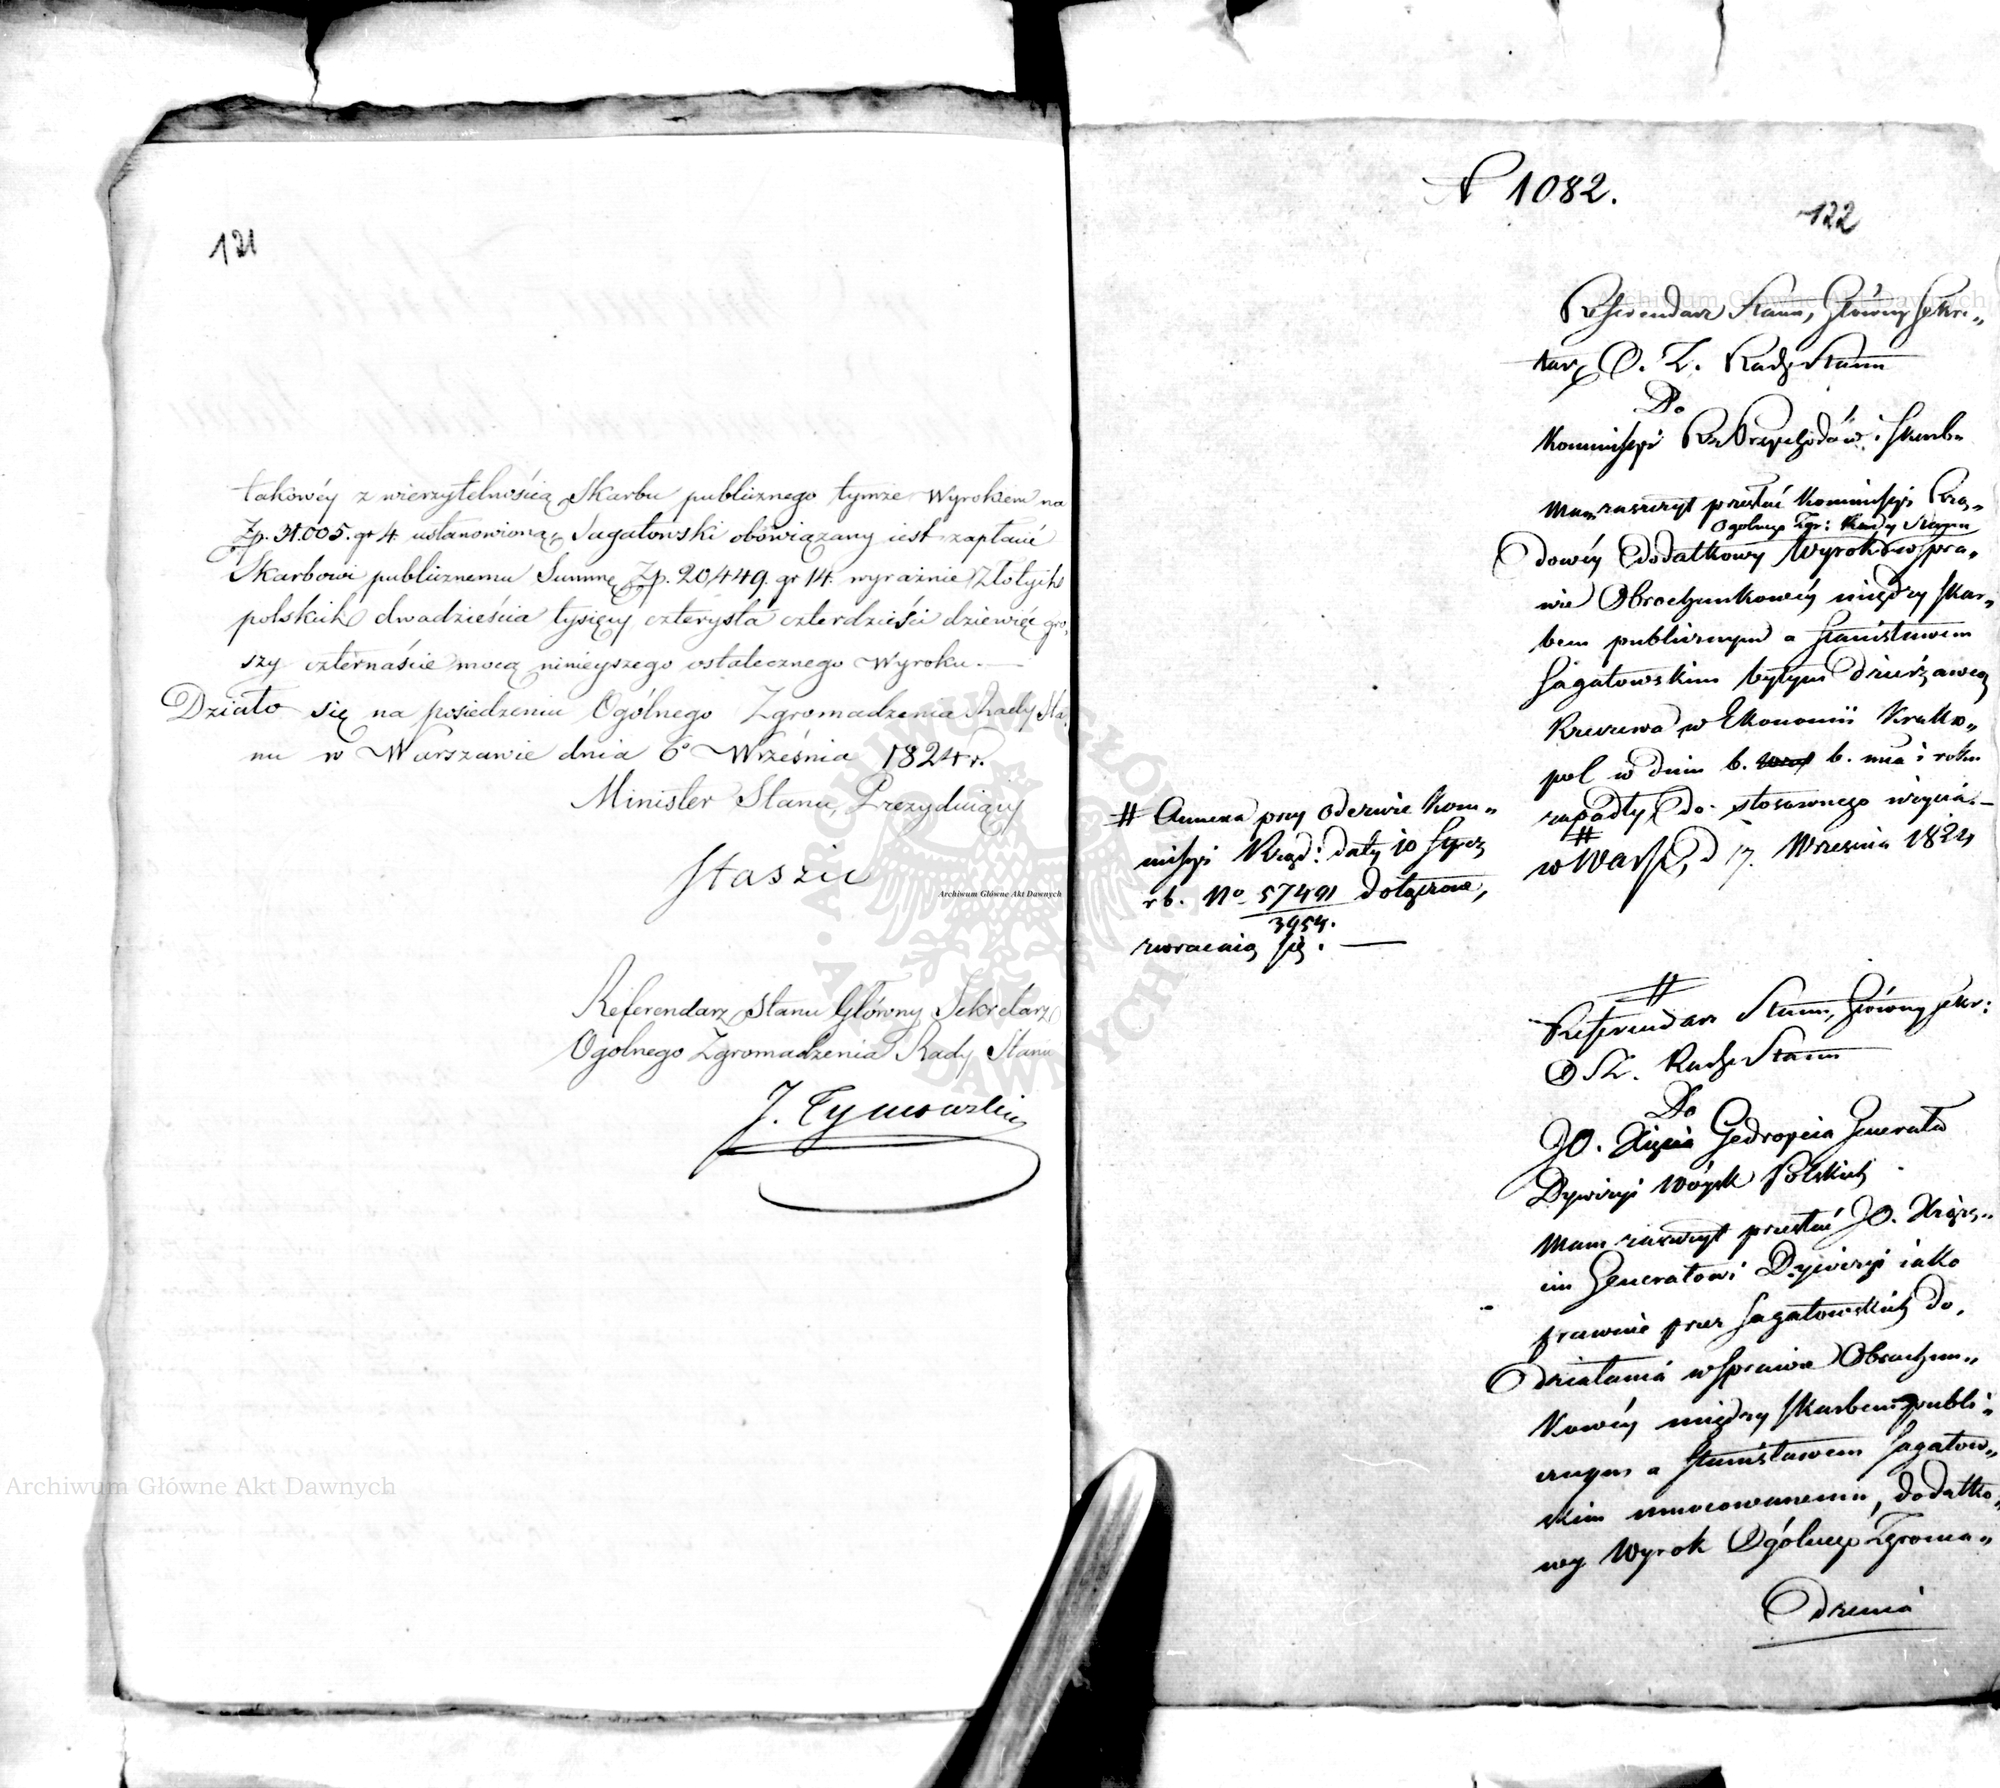 121
takowéy z wierzytelnością Skarbu publicznego tymże Wyrokiem na
Zp. 31.005. gr 4. ustanowioną, Sagatowski obowiązany iest zapłacić
Skarbowi publicznemu Summę Zp. 20,449. gr 14. wyraźnie Złotych
polskich dwadzieścia tysięcy czterysta czterdzieści dziewięć gro,
szy czternaście mocą ninieyszego ostatecznego Wyroku. —
Działo się na posiedzeniu Ogólnego Zgromadzenia Rady Sta,
nu w Warszawie dnia 6º Września 1824 r.
Minister Stanu, Prezyduiący
Staszic
Referendarz Stanu Główny Sekretarz
Ogolnego Zgromadzenia Rady Stanu
J. Tymowski
N 1082.
122
Referendarz Stanu, Główny Sekre„
tarz O. Z. Rady Stanu
Do
Kommissyi Rz. Przychodów i Skarbu
Mam zaszczyt przesłać Kommissyi Rzą„
Ogolnego Zgr: Rady Stanu
dowéy dodatkowy Wyrok w spra„
wie Obrachunkowéy między Skar„
bem publicznym a Stanisławem
Sagatowskim byłym dzierżawcą
w Ekonomii Krako„
pol w dniu 6. b. mca i roku
zapadły do stosownego użycia. —
#
w Warsz. d 17. Września 1824
# Annexa przy odezwie Kom„
missyi Rząd: daty 10 Stycz
r b. Nº 57491/3954. dołączone,
zwracaią się. —
#
Referendarz Stanu, Główny Sekr:
O Z. Rady Stanu
Do
JO. Xięcia Gedroycia Generała
Dywizyi Woysk Polskich
Mam zaszczyt przesłać JO. Xiąże„
ciu Generałowi Dywizyi iako
prawnie przez Sagatowskich do,
działania w Sprawie Obrachun„
kowéy między Skarbem publi„
cznym a Stanisławem Sagatow„
skim umocowanemu, dodatko„
wy Wyrok Ogólnego Zgroma„
dzenia
Archiwum Główne Akt Dawnych
Archiwum Główne Akt Dawnych
Archiwum Główne Akt Dawnych